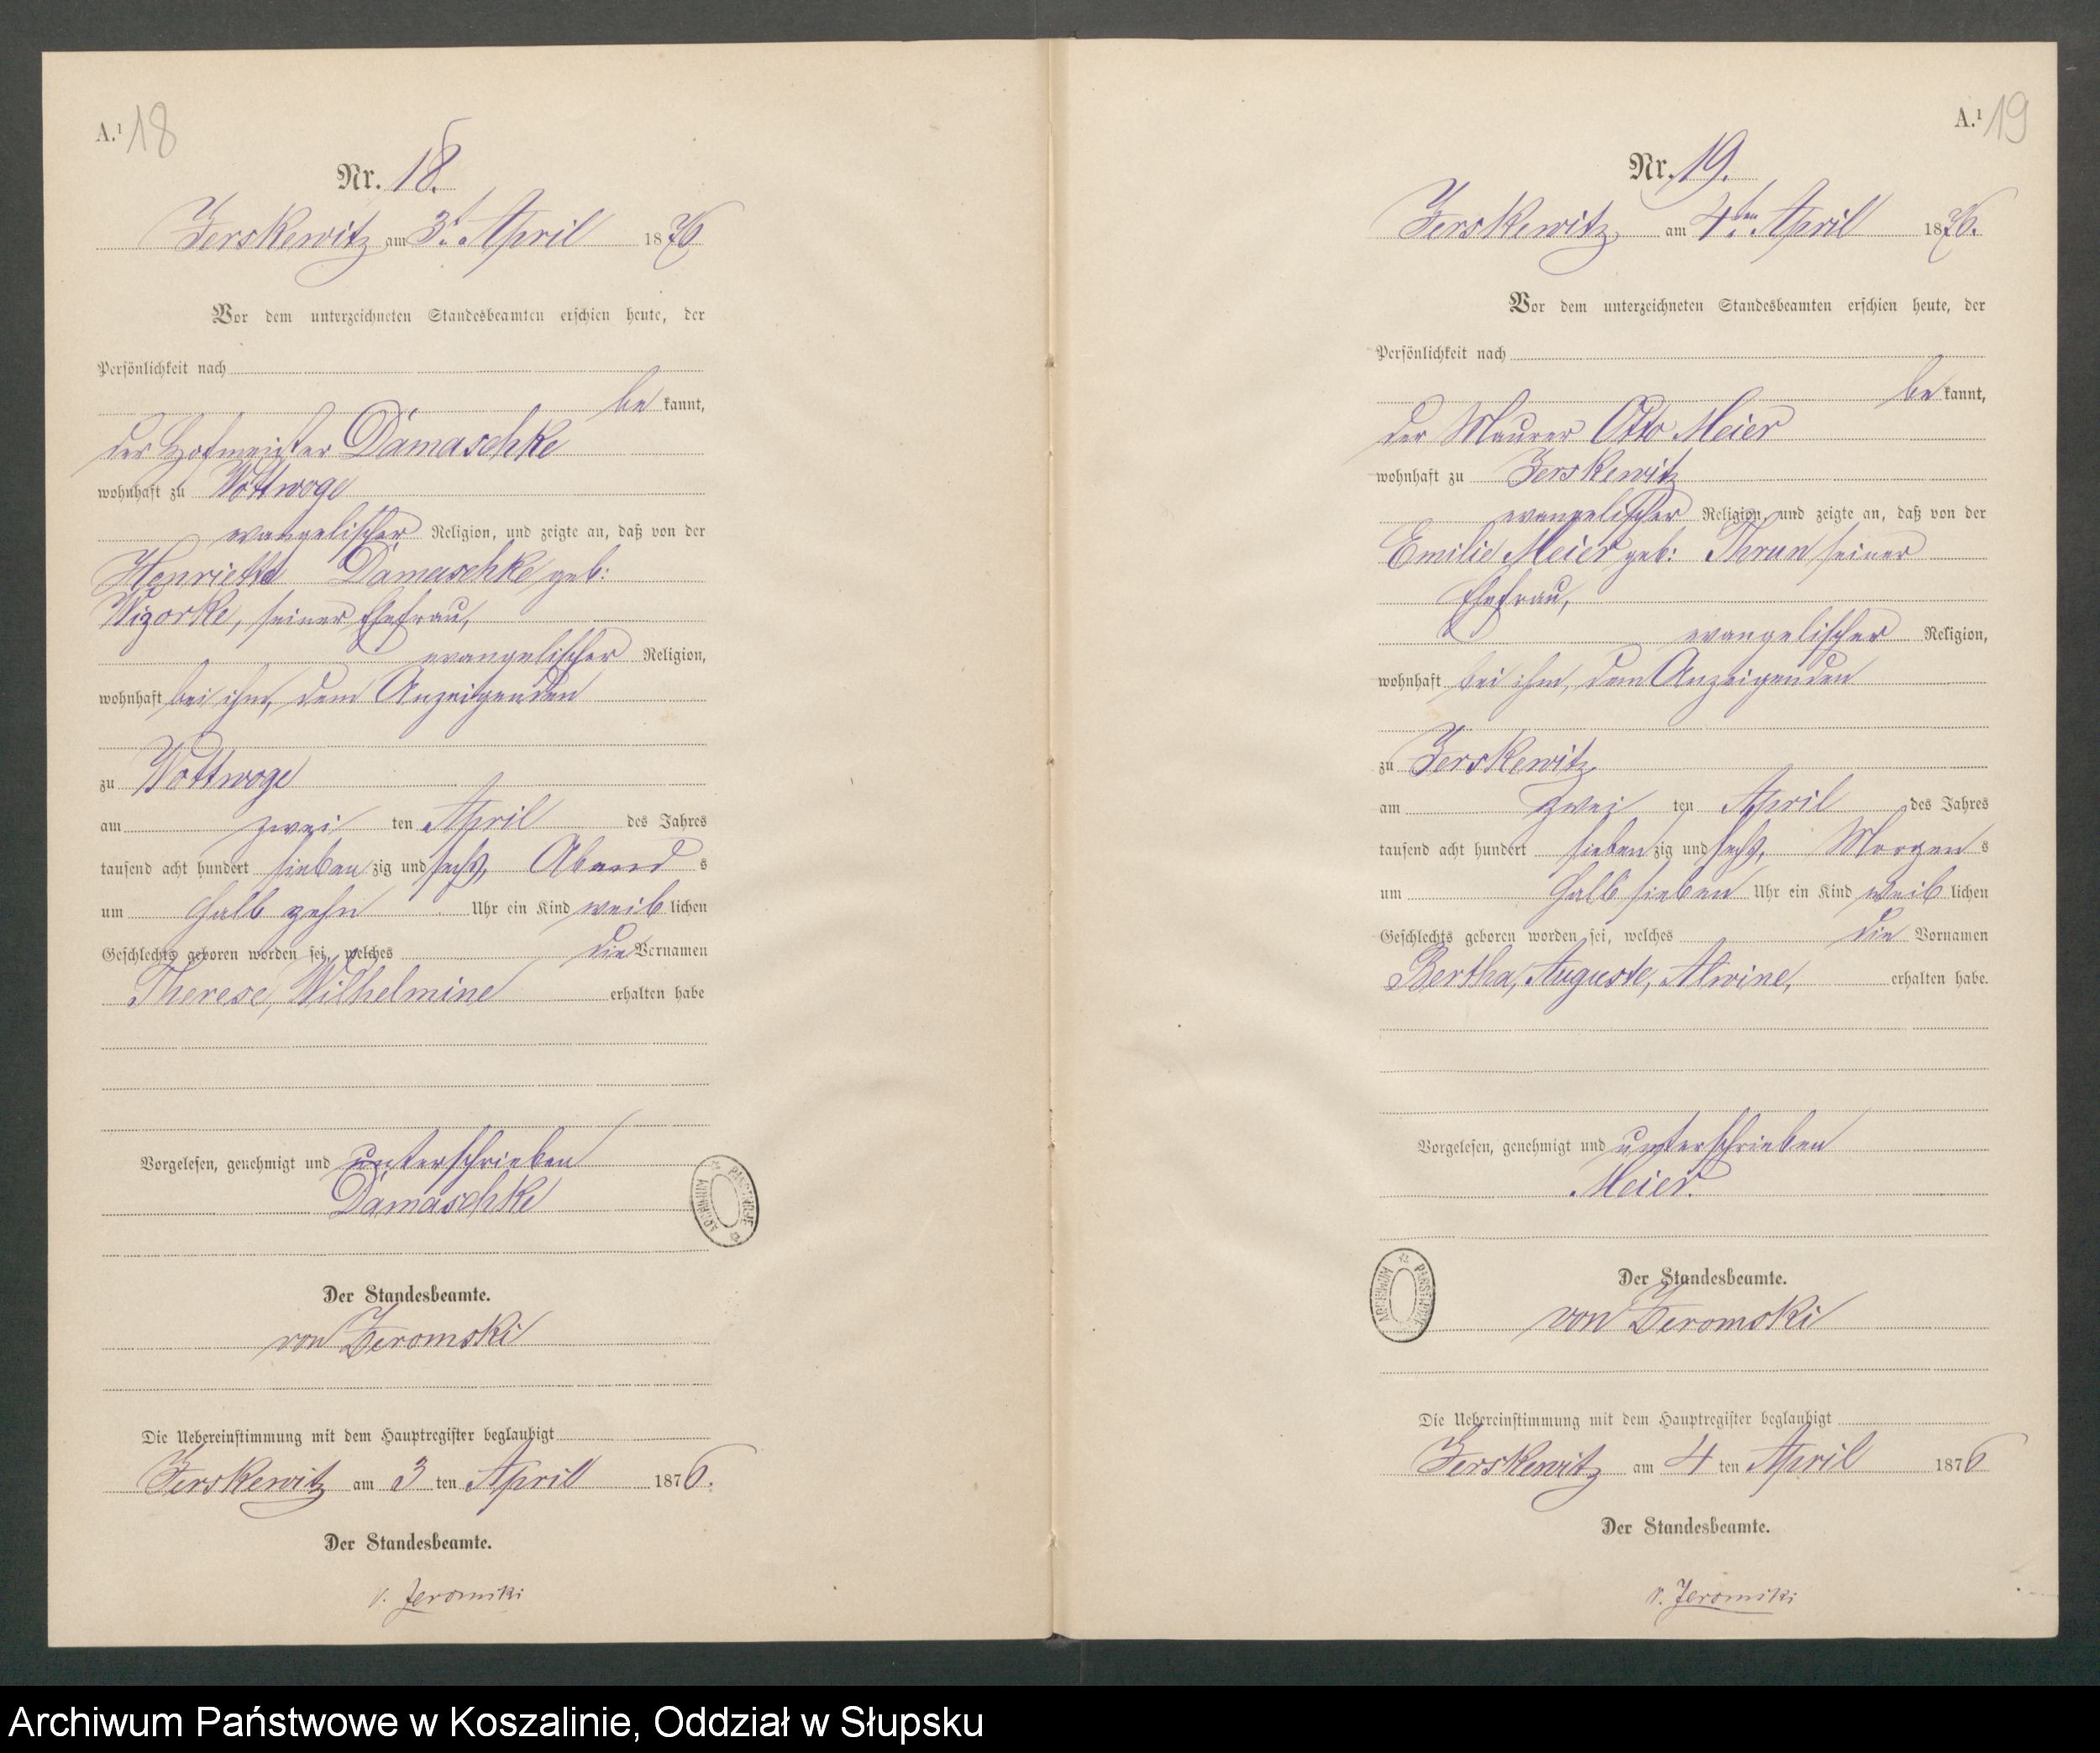 A.¹ 18
Nr. 18.
Zerskewitz am 3t. April 1876
Vor dem unterzeichneten Standesbeamten erschien heute, der
Persönlichkeit nach
be kannt,
der Hofmeister Damaschke
wohnhaft zu Wottwoge
evangelischer Religion, und zeigte an, daß von der
Henriette Damaschke geb:
Wizorke, seiner Ehefrau,
evangelischer Religion,
wohnhaft bei ihm, dem Anzeigenden
zu Wottwoge
am zwei ten April des Jahres
tausend acht hundert sieben zig und sechs, Abend s
um halb zehn Uhr ein Kind weib lichen
Geschlechts geboren worden sei, welches die Vornamen
Therese, Wilhelmine erhalten habe
Vorgelesen, genehmigt und unterschrieben
Damaschke
ARCHIWUM PAŃSTWOWE
Der Standesbeamte.
von Zeromski
Die Uebereinstimmung mit dem Hauptregister beglaubigt
Zerskewitz am 3 ten April 1876.
Der Standesbeamte.
v. Zeromski
A.¹ 19
Nr. 19.
Zerskewitz am 4ten April 1876.
Vor dem unterzeichneten Standesbeamten erschien heute, der
Persönlichkeit nach
be kannt,
der Maurer Otto Meier
wohnhaft zu Zerskewitz
evangelischer Religion, und zeigte an, daß von der
Emilie Meier geb: Thrun seiner
Ehefrau,
evangelischer Religion,
wohnhaft bei ihm, dem Anzeigenden
zu Zerskewitz
am zwei ten April des Jahres
tausend acht hundert sieben zig und sechs, Morgen s
um halb sieben Uhr ein Kind weib lichen
Geschlechts geboren worden sei, welches die Vornamen
Bertha, Auguste, Alwine, erhalten habe.
Vorgelesen, genehmigt und unterschrieben
Meier.
ARCHIWUM PAŃSTWOWE
Der Standesbeamte.
von Zeromski
Die Uebereinstimmung mit dem Hauptregister beglaubigt
Zerskewitz am 4 ten April 1876
Der Standesbeamte.
v. Zeromski
Archiwum Państwowe w Koszalinie, Oddział w Słupsku